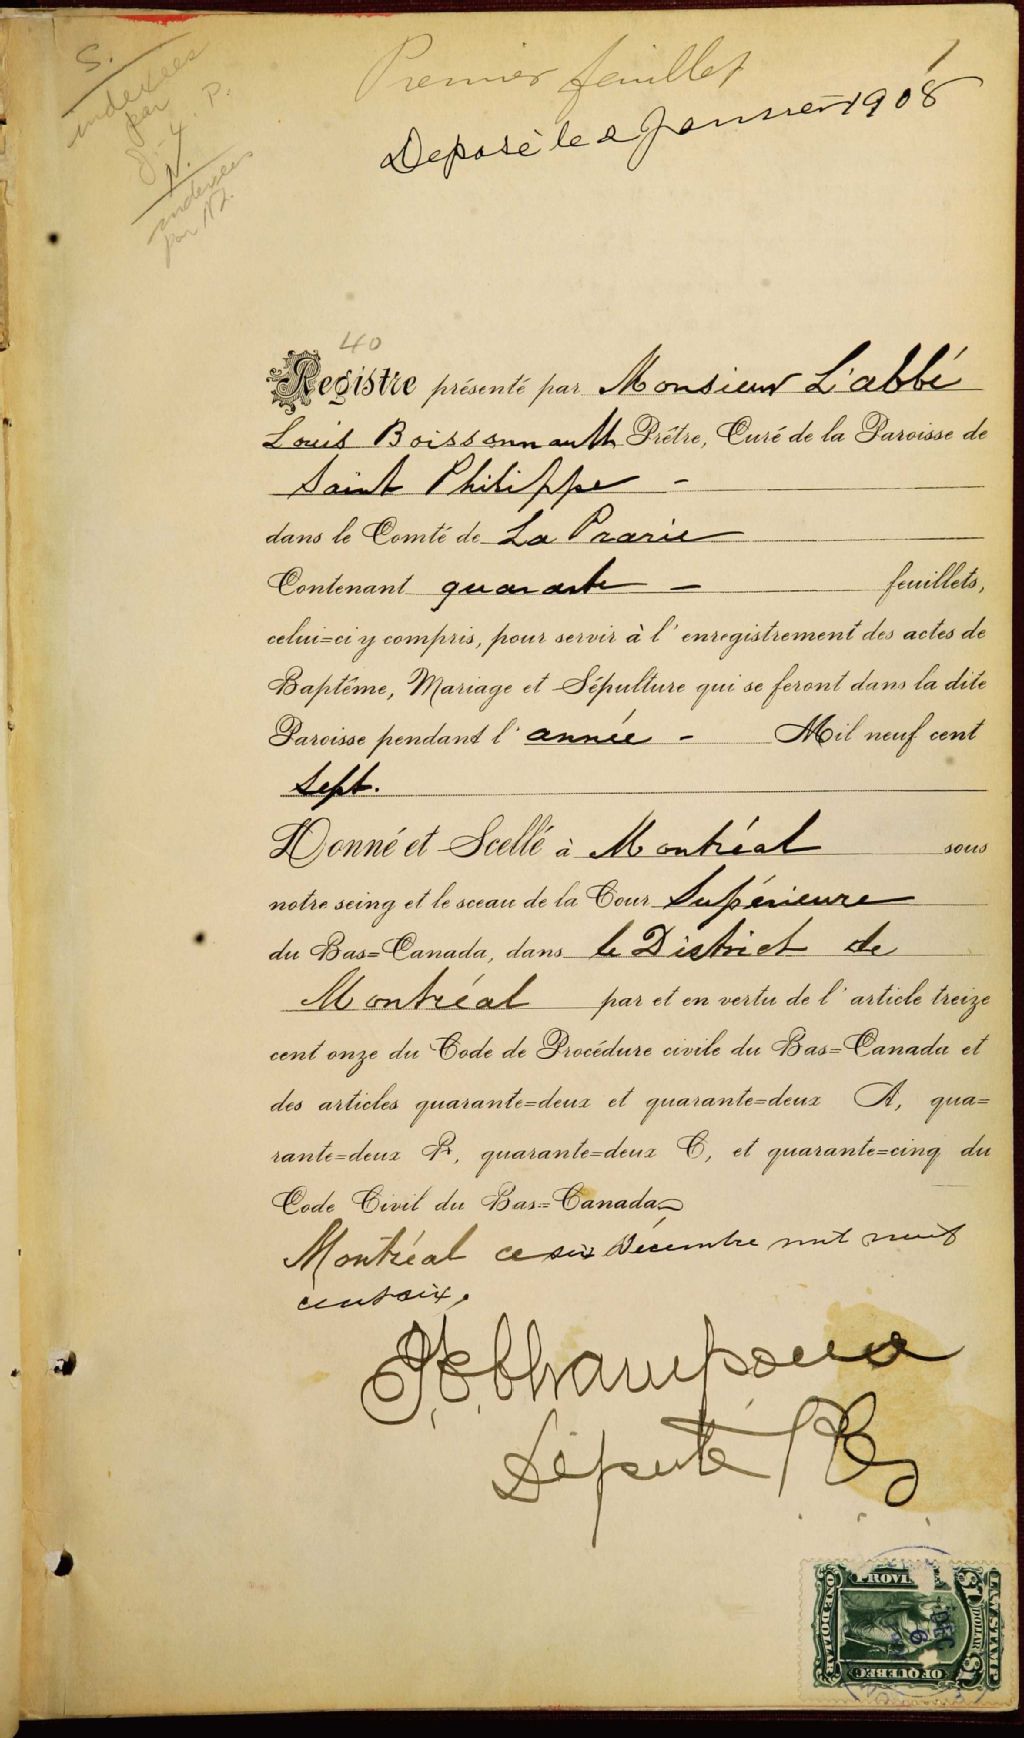 S.
indexées
par
P.
Premier feuillet
1
Deposé le 2 Janvier 1908
indexées
par
40
Registre présenté par Monsieur L'abbé
Louis Boissonnault Prêtre, Curé de la Paroisse de
Saint Philippe -
dans le Comté de La Prarie
Contenant quarante - feuillets,
celui=ci y compris, pour servir à l'enregistrement des actes de
Baptême, Mariage et Sépulture qui se feront dans la dite
Paroisse pendant l'année - Mil neuf cent
Sept.
Donné et Scellé à Montréal sous
notre seing et le sceau de la Cour Supérieure
du Bas=Canada, dans le District de
Montréal par et en vertu de l'article treize
cent onze du Code de Procédure civile du Bas=Canada et
des articles quarante=deux et quarante=deux A, qua=
rante=deux B, quarante=deux C, et quarante=cinq du
Code Civil du Bas=Canada
Montréal ce six Décembre mil neuf
cent six.
Champoux
Député
LAW STAMP
$1 DOLLAR $1
PROVI
OF QUEBEC
ONE DOLLAR
DEC
6